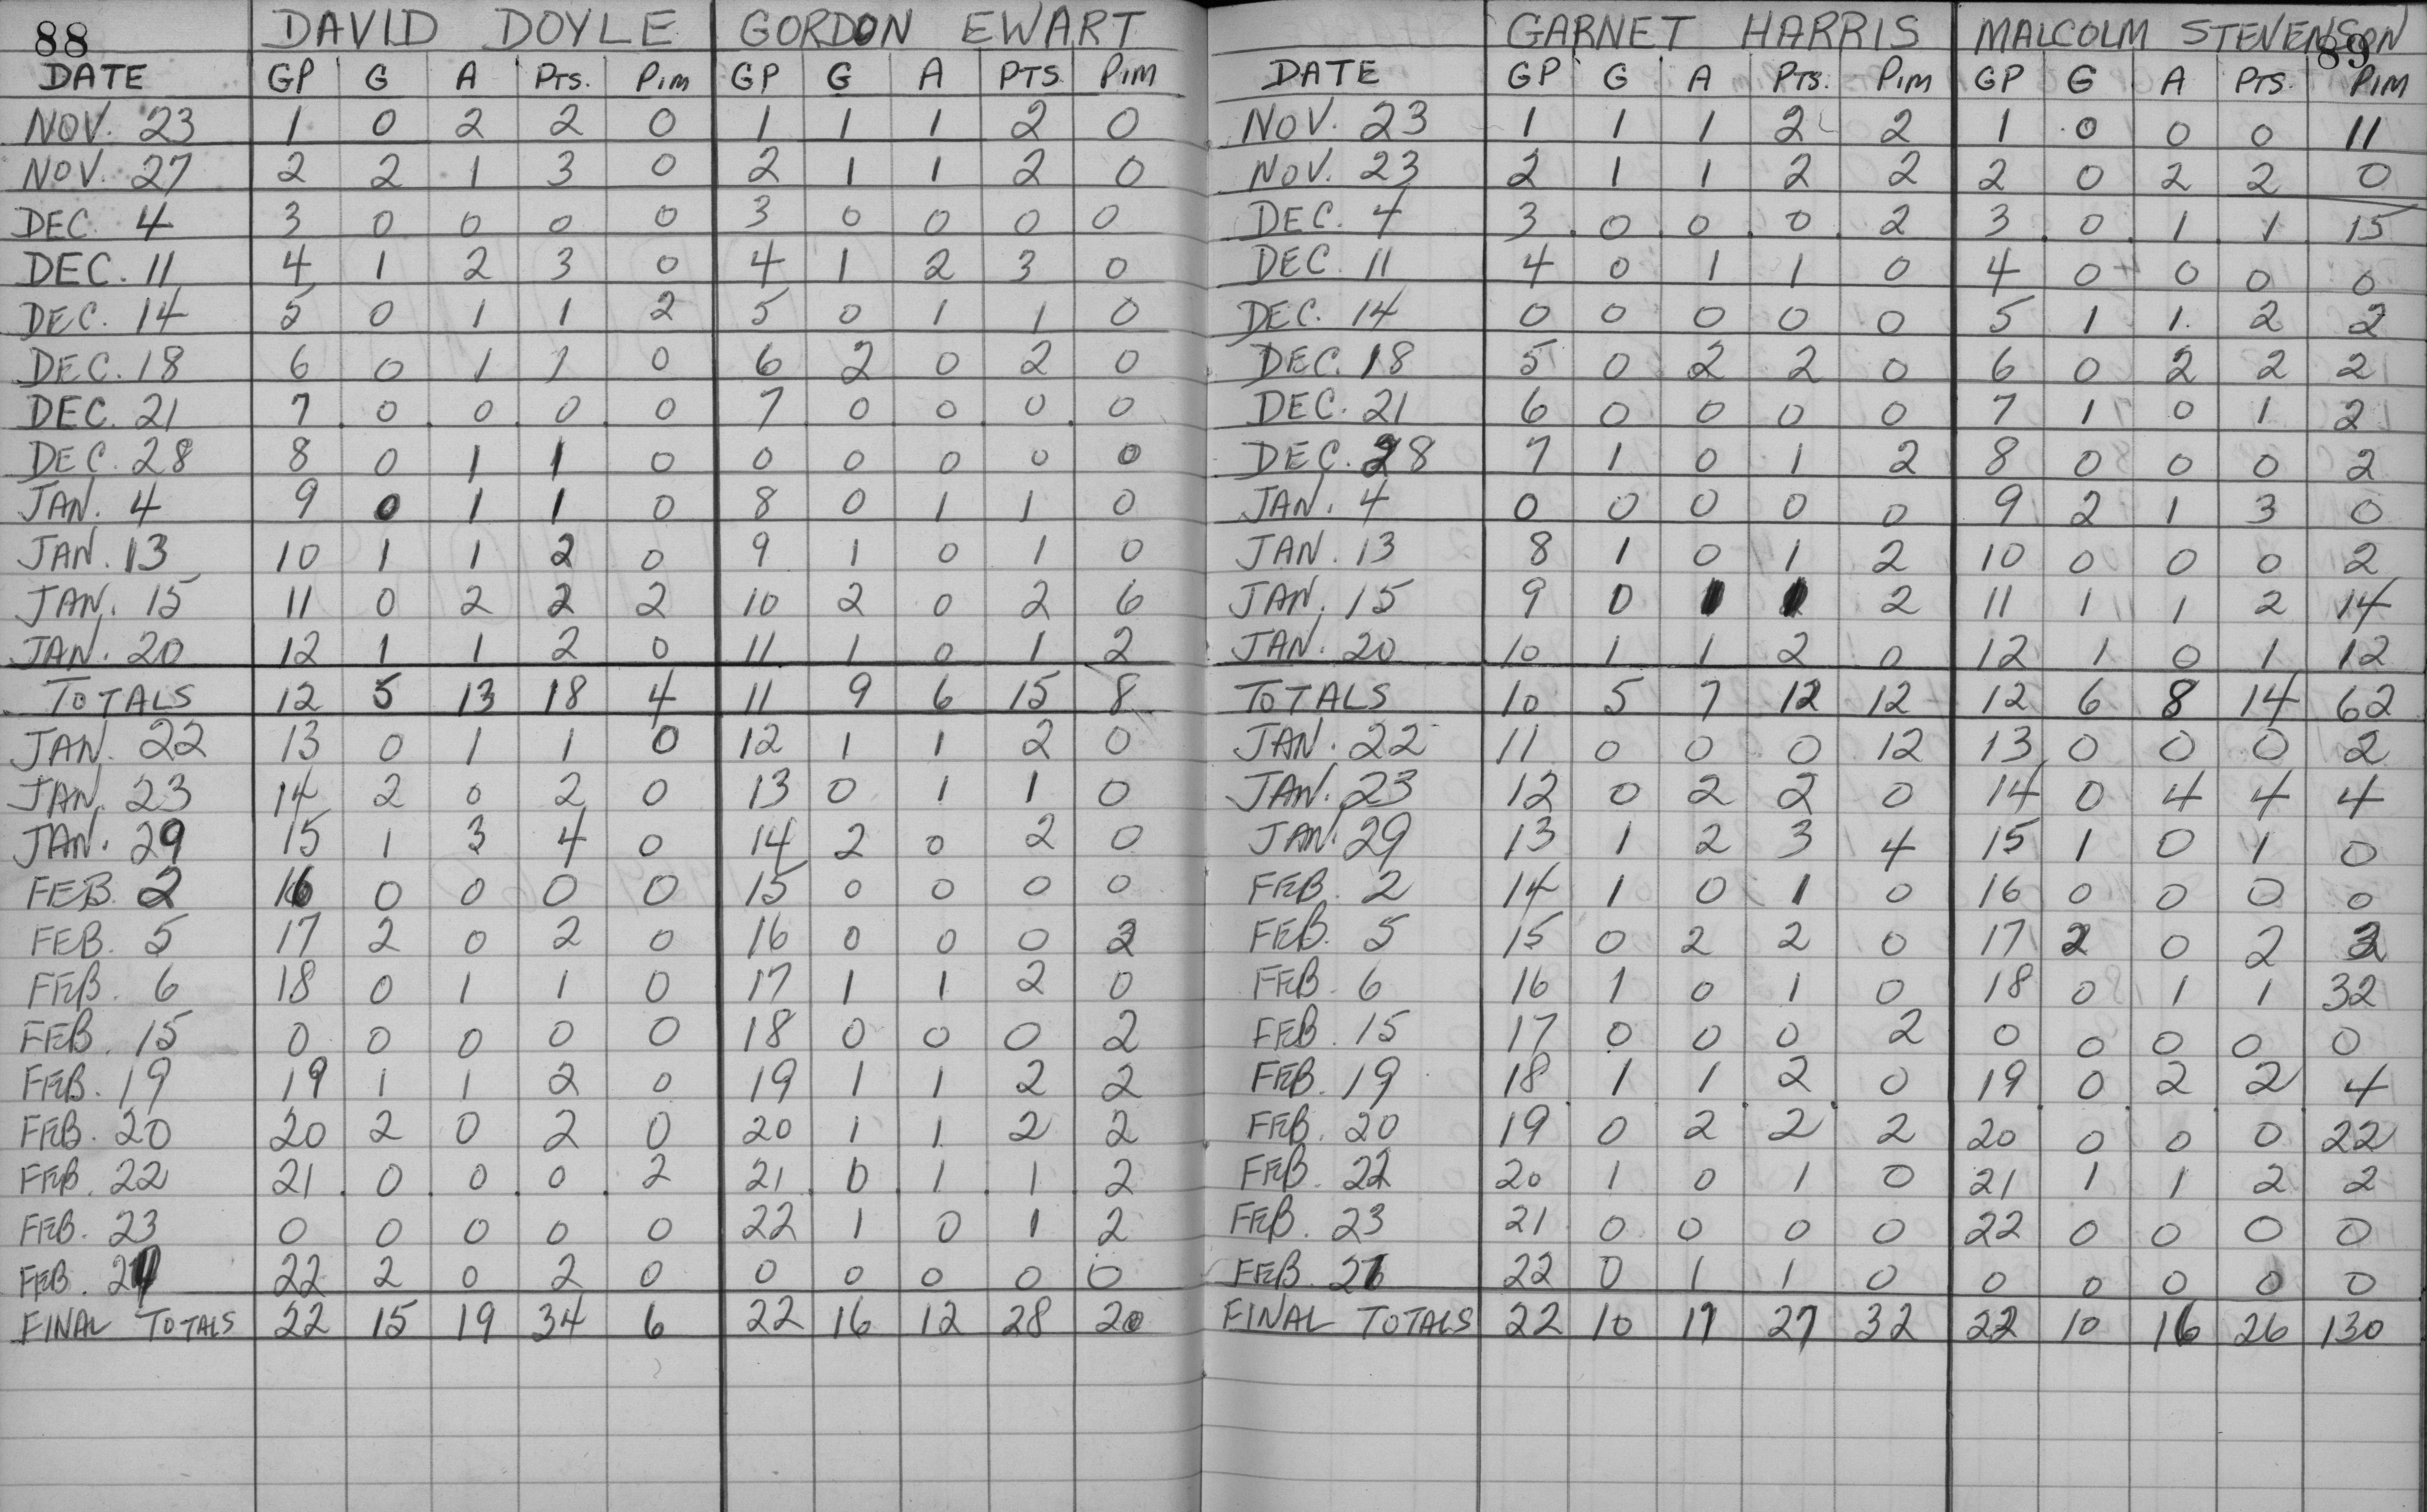 88 DAVID DOYLE GORDON EWART
DATE GP G A PTS. PIM GP G A PTS PIM
NOV. 23 1 0 2 2 0 1 1 1 2 0
NOV. 27 2 2 1 3 0 2 1 1 2 0
DEC. 4 3 0 0 0 0 3 0 0 0 0
DEC. 11 4 1 2 3 0 4 1 2 3 0
DEC. 14 5 0 1 1 2 5 0 1 1 0
DEC. 18 6 0 1 1 0 6 2 0 2 0
DEC. 21 7 0 0 0 0 7 0 0 0 0
DEC. 28 8 0 1 1 0 0 0 0 0 0
JAN. 4 9 0 1 1 0 8 0 1 1 0
JAN. 13 10 1 1 2 0 9 1 0 1 0
JAN. 15 11 0 2 2 2 10 2 0 2 6
JAN. 20 12 1 1 2 0 11 1 0 1 2
TOTALS 12 5 13 18 4 11 9 6 15 8
JAN. 22 13 0 1 1 0 12 1 1 2 0
JAN. 23 14 2 0 2 0 13 0 1 1 0
JAN. 29 15 1 3 4 0 14 2 0 2 0
FEB. 2 16 0 0 0 0 15 0 0 0 0
FEB. 5 17 2 0 2 0 16 0 0 0 2
FEB. 6 18 0 1 1 0 17 1 1 2 0
FEB. 15 0 0 0 0 0 18 0 0 0 2
FEB. 19 19 1 1 2 0 19 1 1 2 2
FEB. 20 20 2 0 2 0 20 1 1 2 2
FEB. 22 21 0 0 0 2 21 0 1 1 2
FEB. 23 0 0 0 0 0 22 1 0 1 2
FEB. 22 2 0 2 0 0 0 0 0 0
FINAL TOTALS 22 15 19 34 6 22 16 12 28 20
GARNET HARRIS MALCOLM STEVENSON 89
DATE GP G A PTS. PIM GP G A PTS. PIM
NOV. 23 1 1 1 2 2 1 0 0 0 11
NOV. 23 2 1 1 2 2 2 0 2 2 0
DEC. 4 3 0 0 0 2 3 0 1 1 15
DEC. 11 4 0 1 1 0 4 0 0 0 0
DEC. 14 0 0 0 0 0 5 1 1 2 2
DEC. 18 5 0 2 2 0 6 0 2 2 2
DEC. 21 6 0 0 0 0 7 1 0 1 2
DEC. 28 7 1 0 1 2 8 0 0 0 2
JAN. 4 0 0 0 0 0 9 2 1 3 0
JAN. 13 8 1 0 1 2 10 0 0 0 2
JAN. 15 9 0 1 1 2 11 1 1 2 14
JAN. 20 10 1 1 2 0 12 1 0 1 12
TOTALS 10 5 7 12 12 12 6 8 14 62
JAN. 22 11 0 0 0 12 13 0 0 0 2
JAN. 23 12 0 2 2 0 14 0 4 4 4
JAN. 29 13 1 2 3 4 15 1 0 1 0
FEB. 2 14 1 0 1 0 16 0 0 0 0
FEB. 5 15 0 2 2 0 17 2 0 2 2
FEB. 6 16 1 0 1 0 18 0 1 1 32
FEB. 15 17 0 0 0 2 0 0 0 0 0
FEB. 19 18 1 1 2 0 19 0 2 2 4
FEB. 20 19 0 2 2 2 20 0 0 0 22
FEB. 22 20 1 0 1 0 21 1 1 2 2
FEB. 23 21 0 0 0 0 22 0 0 0 0
FEB. 22 0 1 1 0 0 0 0 0 0
FINAL TOTALS 22 10 17 27 32 22 10 16 26 130